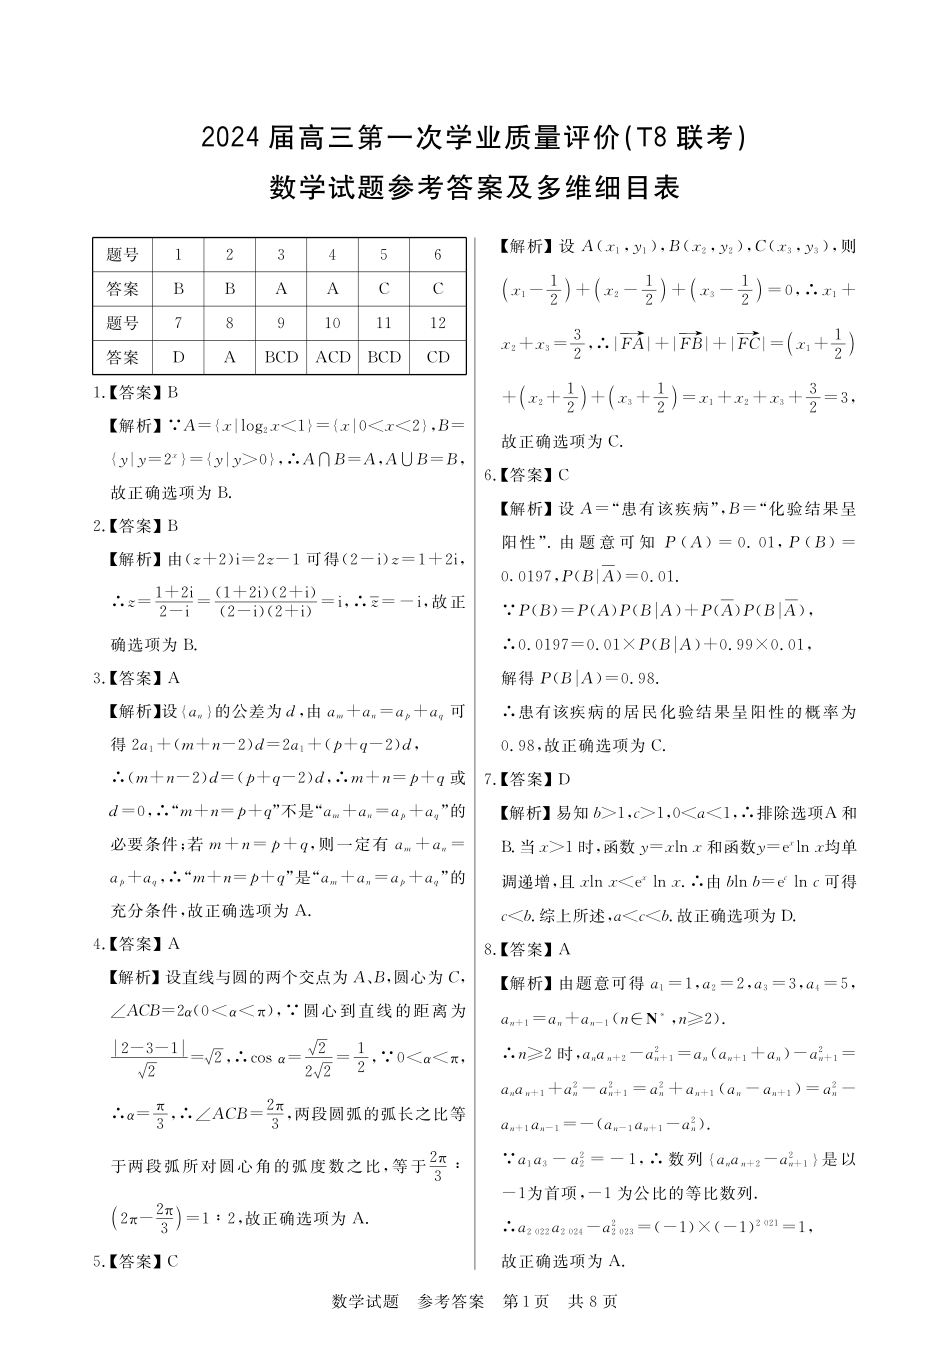 2024 届高三第一次学业质量评价(T8 联考)
数学试题参考答案及多维细目表
题号 1 2 3 4 5 6
答案 B B A A C C
题号 7 8 9 10 11 12
答案 D A BCD ACD BCD CD
1.【答案】B
【解析】∵A={x|log₂x<1}={x|0<x<2},B=
{y|y=2ˣ}={y|y>0},∴A∩B=A,A∪B=B,
故正确选项为 B.
2.【答案】B
【解析】由(z+2)i=2z-1 可得(2-i)z=1+2i,
∴z=\frac{1+2i}{2-i}=\frac{(1+2i)(2+i)}{(2-i)(2+i)}=i,∴\overline{z}=-i,故正
确选项为 B.
3.【答案】A
【解析】设{aₙ}的公差为 d,由 aₘ+aₙ=a_p+a_q 可
得 2a₁+(m+n-2)d=2a₁+(p+q-2)d,
∴(m+n-2)d=(p+q-2)d,∴m+n=p+q 或
d=0,∴“m+n=p+q”不是“aₘ+aₙ=a_p+a_q”的
必要条件;若 m+n=p+q,则一定有 aₘ+aₙ=
a_p+a_q,∴“m+n=p+q”是“aₘ+aₙ=a_p+a_q”的
充分条件,故正确选项为 A.
4.【答案】A
【解析】设直线与圆的两个交点为 A、B,圆心为 C,
∠ACB=2α(0<α<π),∵圆心到直线的距离为
\frac{|2-3-1|}{\sqrt{2}}=\sqrt{2},∴cos α=\frac{\sqrt{2}}{2\sqrt{2}}=\frac{1}{2},∵0<α<π,
∴α=\frac{π}{3},∴∠ACB=\frac{2π}{3},两段圆弧的弧长之比等
于两段弧所对圆心角的弧度数之比,等于\frac{2π}{3}:
(2π-\frac{2π}{3})=1:2,故正确选项为 A.
5.【答案】C
【解析】设 A(x₁,y₁),B(x₂,y₂),C(x₃,y₃),则
(x₁-\frac{1}{2})+(x₂-\frac{1}{2})+(x₃-\frac{1}{2})=0,∴x₁+
x₂+x₃=\frac{3}{2},∴|\overrightarrow{FA}|+|\overrightarrow{FB}|+|\overrightarrow{FC}|=(x₁+\frac{1}{2})
+(x₂+\frac{1}{2})+(x₃+\frac{1}{2})=x₁+x₂+x₃+\frac{3}{2}=3,
故正确选项为 C.
6.【答案】C
【解析】设 A=“患有该疾病”,B=“化验结果呈
阳性”. 由题意可知 P(A)=0.01,P(B)=
0.0197,P(B|\overline{A})=0.01.
∵P(B)=P(A)P(B|A)+P(\overline{A})P(B|\overline{A}),
∴0.0197=0.01×P(B|A)+0.99×0.01,
解得 P(B|A)=0.98.
∴患有该疾病的居民化验结果呈阳性的概率为
0.98,故正确选项为 C.
7.【答案】D
【解析】易知 b>1,c>1,0<a<1,∴排除选项A 和
B. 当 x>1 时,函数 y=xln x 和函数y=eˣln x均单
调递增,且 xln x<eˣ ln x.∴由 bln b=eᶜ ln c 可得
c<b. 综上所述,a<c<b. 故正确选项为 D.
8.【答案】A
【解析】由题意可得 a₁=1,a₂=2,a₃=3,a₄=5,
aₙ₊₁=aₙ+aₙ₋₁(n∈N*,n≥2).
∴n≥2 时,aₙaₙ₊₂-a²ₙ₊₁=aₙ(aₙ₊₁+aₙ)-a²ₙ₊₁=
aₙaₙ₊₁+a²ₙ-a²ₙ₊₁=a²ₙ+aₙ₊₁(aₙ-aₙ₊₁)=a²ₙ-
aₙ₊₁aₙ₋₁=-(aₙ₋₁aₙ₊₁-a²ₙ).
∵a₁a₃-a²₂=-1,∴数列{aₙaₙ₊₂-a²ₙ₊₁}是以
-1为首项,-1 为公比的等比数列.
∴a₂₀₂₂a₂₀₂₄-a²₂₀₂₃=(-1)×(-1)²⁰²¹=1,
故正确选项为 A.
数学试题 参考答案 第 1 页 共 8 页